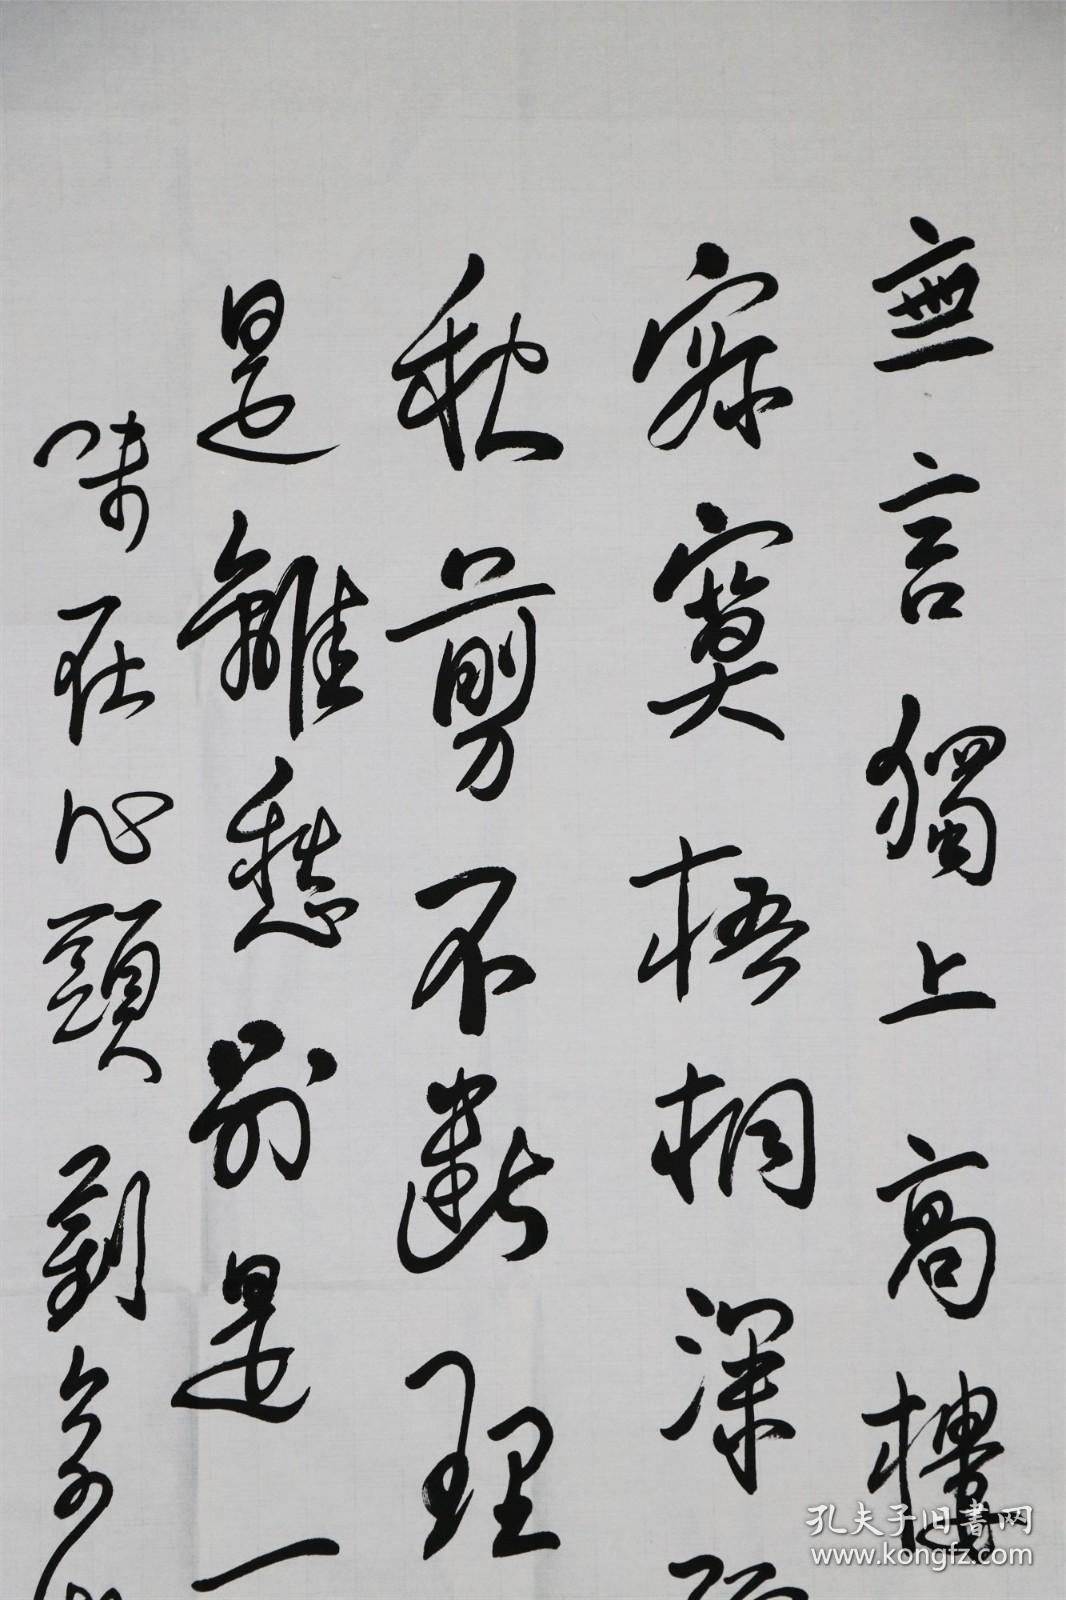 無言獨上高樓
寂寞梧桐深
秋剪不斷理
是離愁別是一
味在心頭
孔夫子旧書网
www.kongfz.com